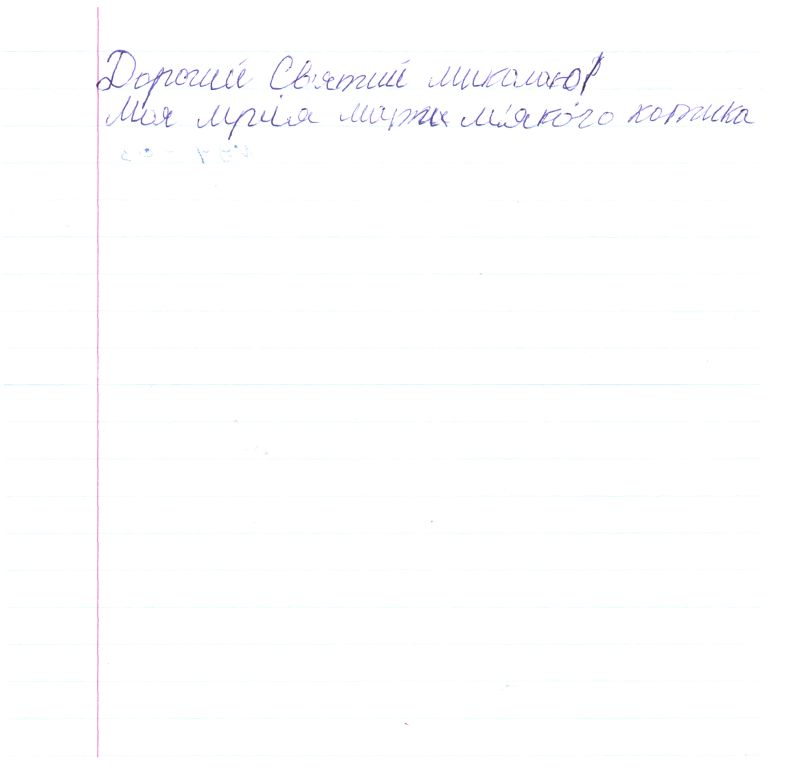 Дорогий Святий миколаю!
Моя мрія мати м'якого котика